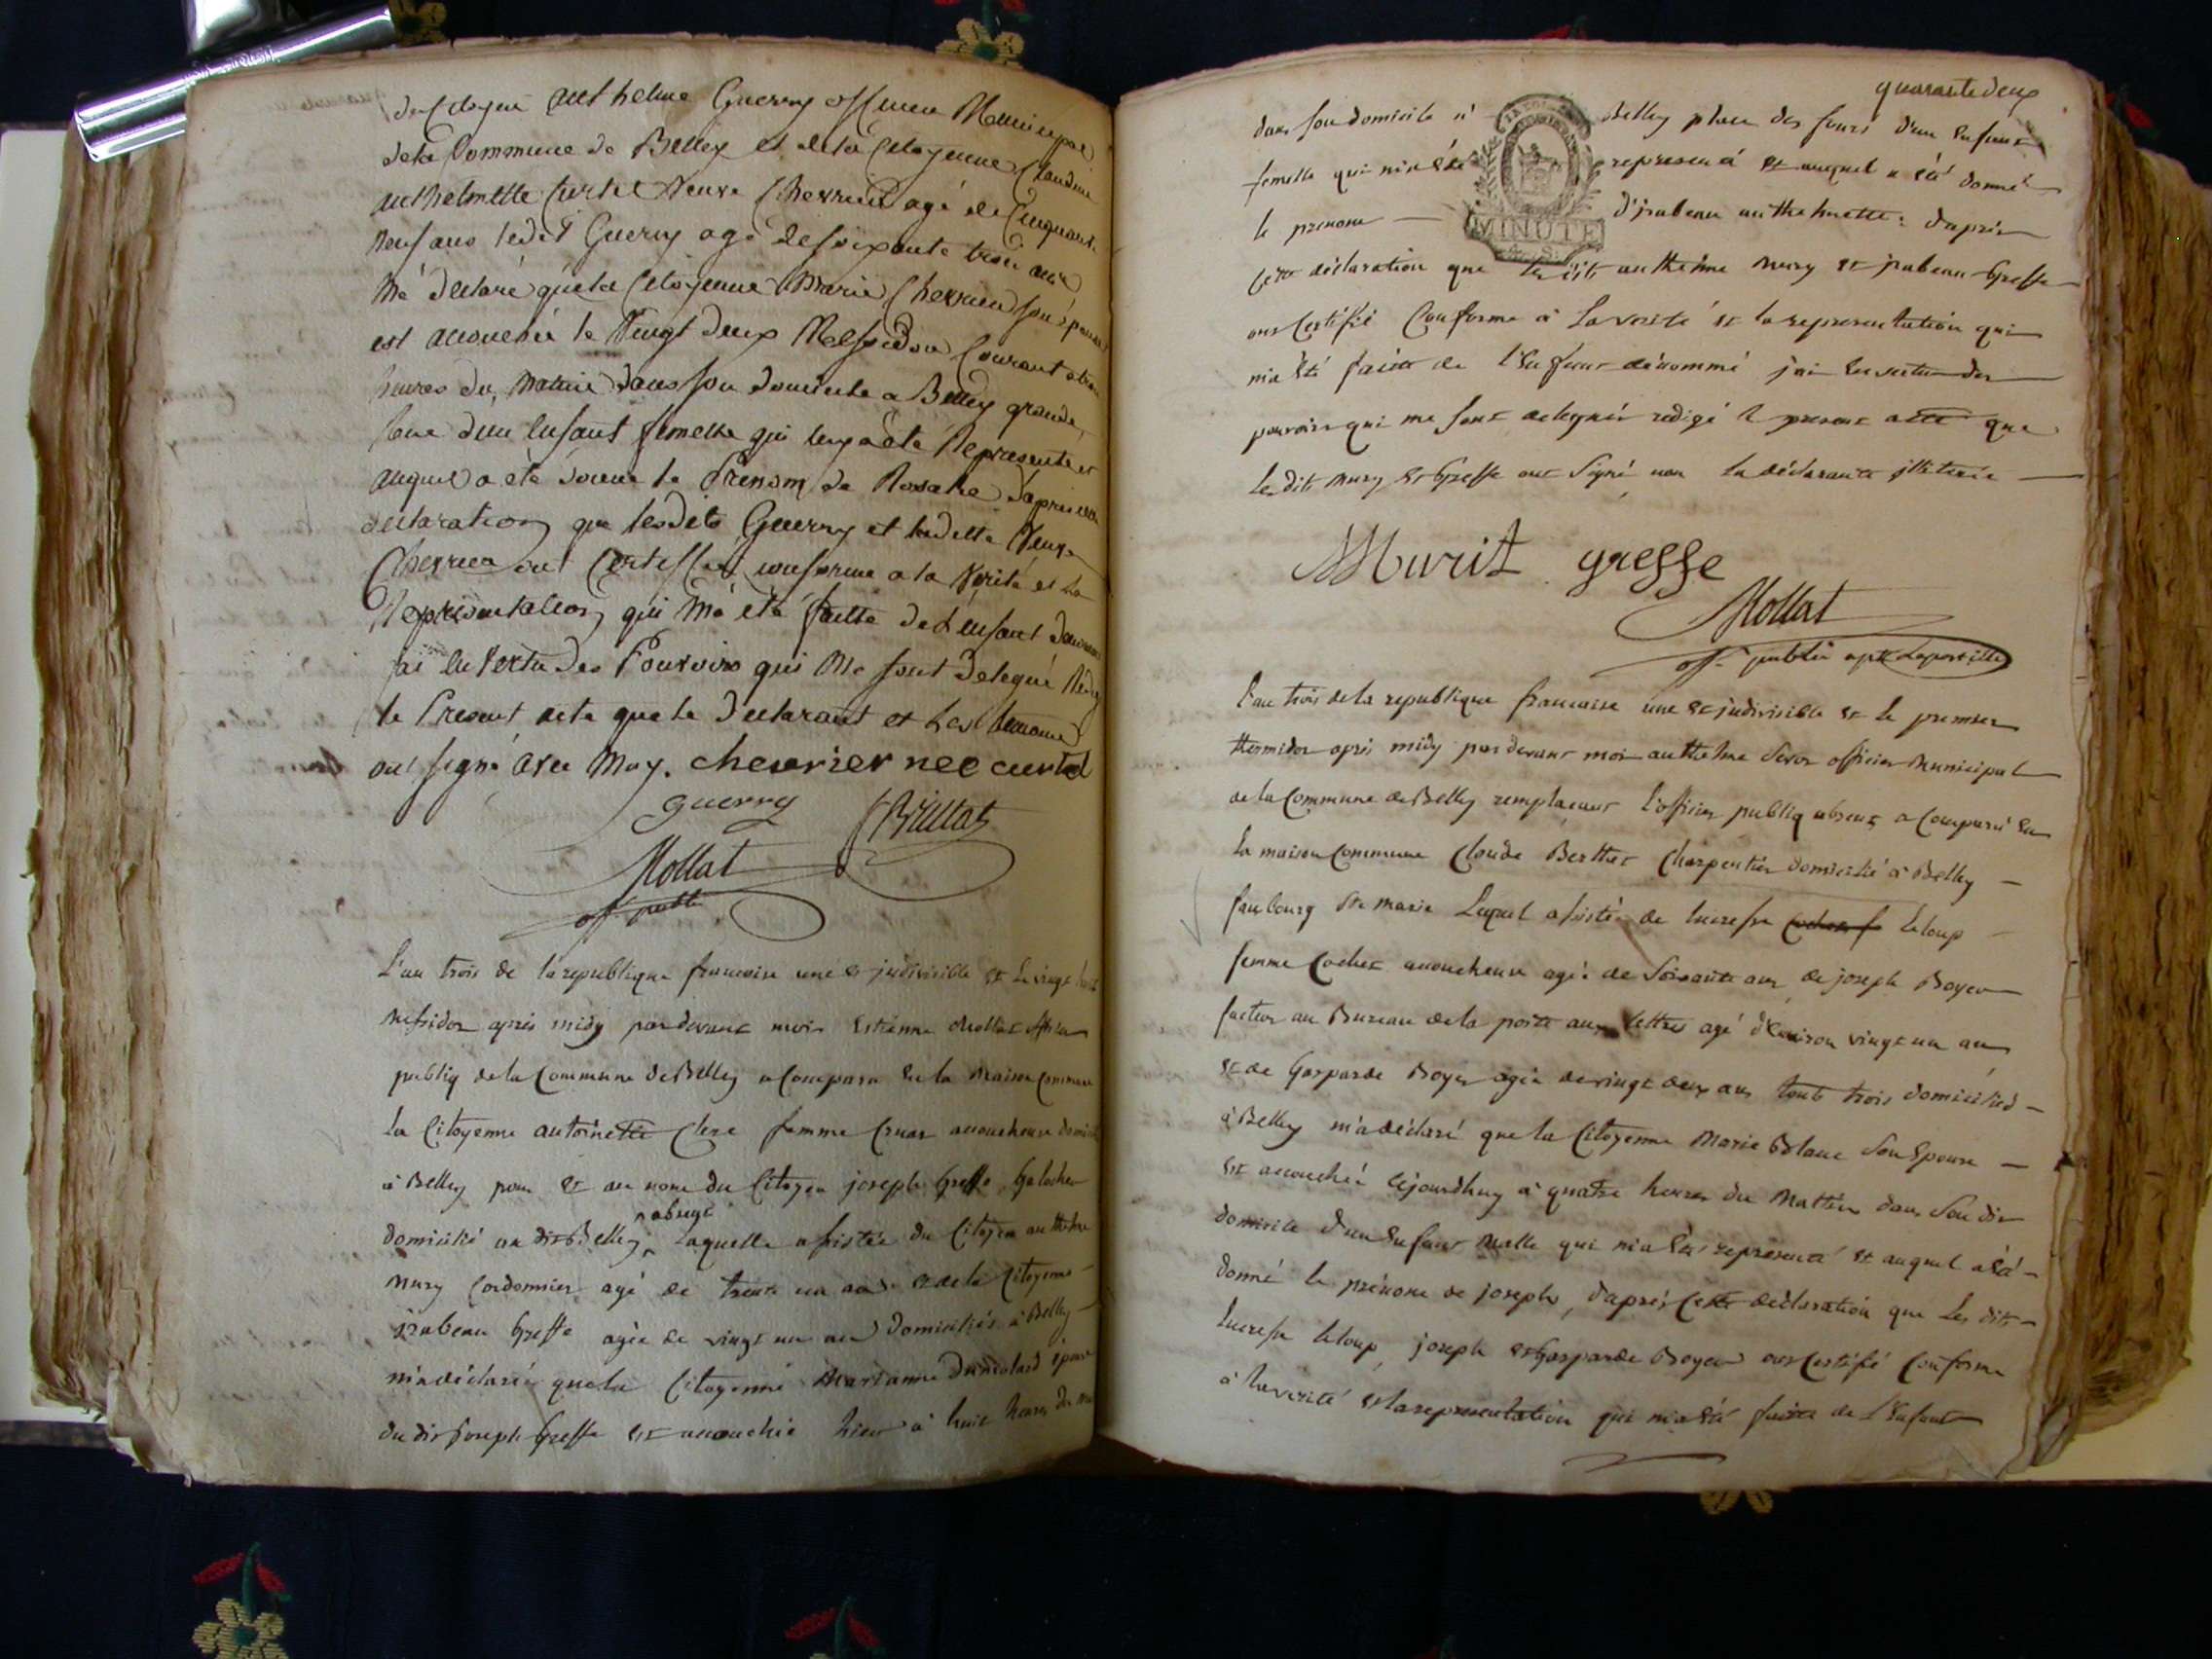 du Citoyen anthelme Guerry officier Municipal
de la Commune de Belley et de la Citoyenne Claudine
anthelmette Curtet Veuve Cherrier agé de Cinquante
neuf ans ledit Guerry agé de soixante trois ans
M'a déclaré que la Citoyenne Marie Cherrier son épouse
est accouchée le Vingt deux Messidor Courant a trois
heures du matin dans son domicile a Belley grande
Rue d'un Enfant femelle qui leur a été Représenté et
auquel a été donné le Prenom de Rosalie d'après cette
declaration que lesdits Guerry et ladite Veuve
Cherrier ont Certiffié conforme a la Vérité et la
Représentation qui M'a été faitte de L'enfant
j'ai En Vertu des Pouvoirs qui Me sont Delegué
le Present acte que le Declarant et Les temoins
ont signé avec Moy. chevrier nee curtel
guerry Brillat
Mollat
off. public
L'an trois de la republique francoise une et indivisible et Le vingt huit
messidor après midy par devant moi Estienne Mollat officier
publiq de la Commune de Belley a Comparu En la Maison Commune
la Citoyenne antoinette Clerc femme Cruas accoucheuse
à Belley pour et au nom du Citoyen joseph Greffe Galocher
absuge
domicilié au dit Belley, Laquelle assistée du Citoyen anthelme
mury Cordonnier agé de trente un ans et de la Citoyenne
izabeau Greffe agée de vingt un an domiciliés à Belley
m'a déclaré que la Citoyenne Marianne Dumolard épouse
du dit Joseph Greffe est accouchée hier à huit heures du
quarante deux
dans son domicile à Belley place des fours d'un Enfant
femelle qui m'a été representé et auquel a été donné
le prenom — d'izabeau anthelmette: d'après
MINUTE
Cette déclaration que les dits anthelme mury et izabeau Greffe
ont Certifié Conforme à La verité et la representation qui
m'a été faitte de l'Enfant dénommé j'ai En vertu des
pouvoirs qui me sont delegués redigé le present acte que
les dits mury et Greffe ont signé non la déclarante illiterée
Murit greffe
Mollat
off. public
L'an trois de la republique francaise une et indivisible et le premier
thermidor après midy par devant moi anthelme officier Municipal
de la Commune de Belley remplacant l'officier publiq absent a Comparu En
la maison Commune Claude Berthet Charpentier domicilié à Belley
faubourg Ste marie Lequel assisté de lucresse Leloup
femme Cochet accoucheuse agée de Soixante ans de joseph Boyer
facteur au Bureau de la poste aux lettres agé d'Environ vingt un an
et de Gasparde Boyer agée de vingt deux ans touts trois domiciliés
à Belley m'a déclaré que la Citoyenne Marie Blanc son Epouse
est accouchée cejourdhuy à quatre heures du Mattin dans Son dit
domicile d'un Enfant Malle qui m'a été representé et auquel a été
donné le prénom de joseph, d'après Cette déclaration que Les dits
lucresse leloup, joseph et Gasparde Boyer ont Certifié Conforme
à la verité et la representation qui m'a été faitte de l'Enfant